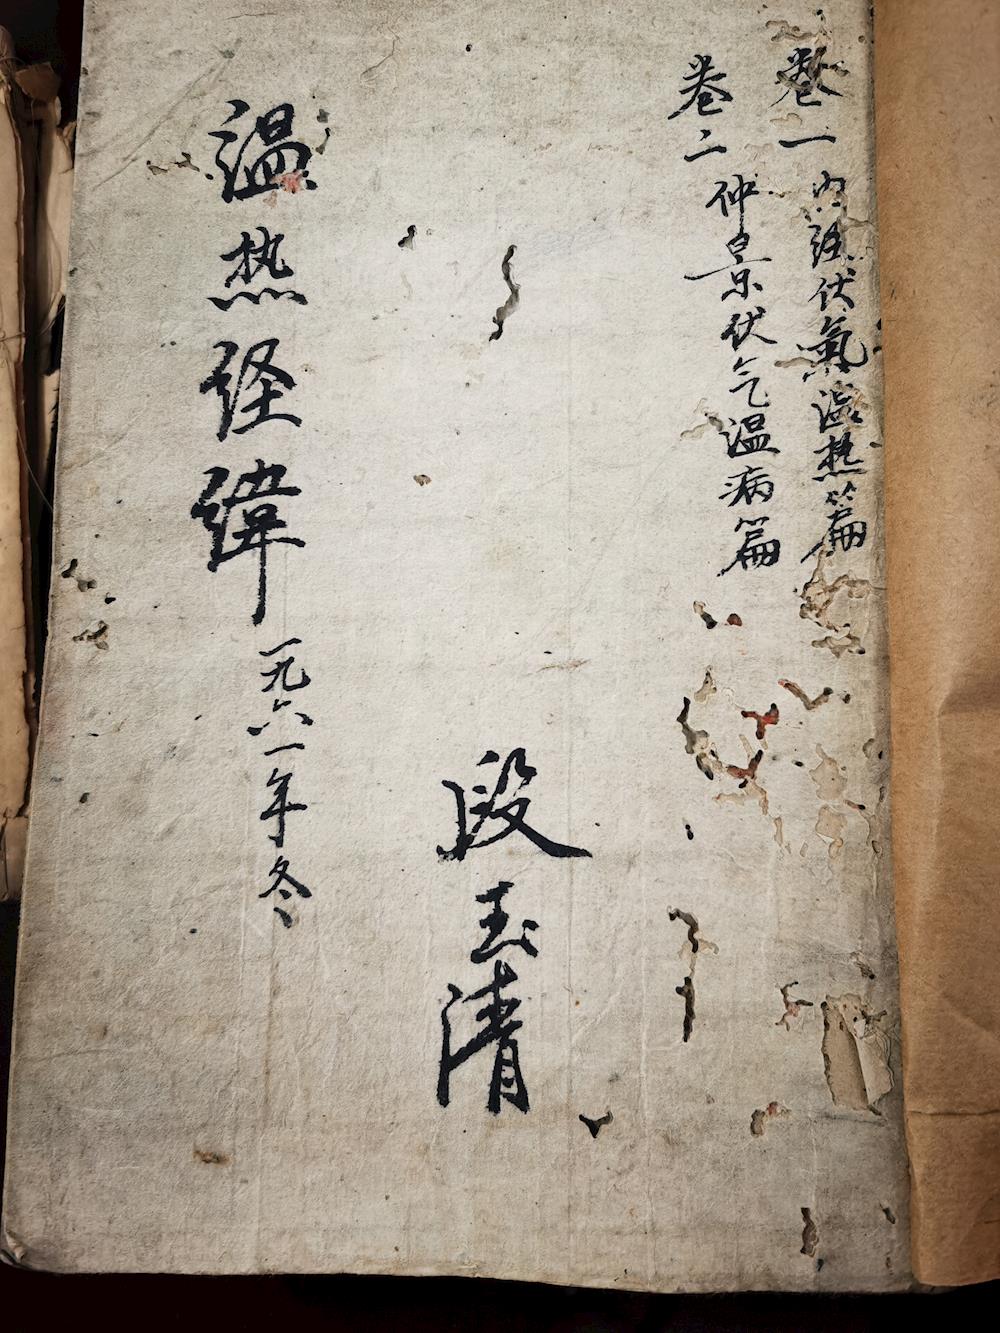 卷一 内经伏氣温热篇
卷二 仲景伏气温病篇
段玉清
温热经緯
一九六一年冬